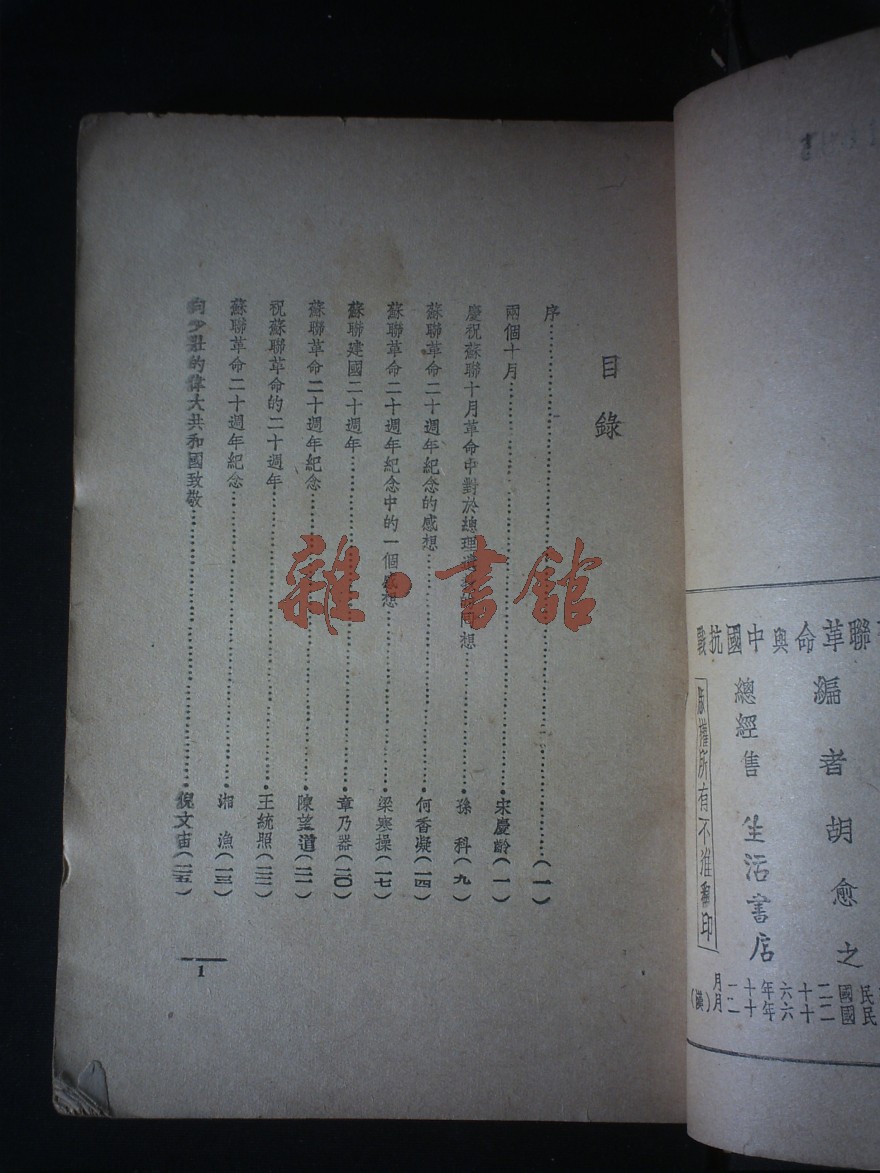 聯革命與中國抗戰
編者 胡愈之
總經售 生活書店
版權所有不准翻印
民國二十六年十一月
民國二十六年十二月(漢)
目錄
序……(一)
兩個十月……宋慶齡(一)
慶祝蘇聯十月革命中對於總理想……孫科(九)
蘇聯革命二十週年紀念的感想……何香凝(一四)
蘇聯革命二十週年紀念中的一個感想……梁寒操(一七)
蘇聯建國二十週年……章乃器(二〇)
蘇聯革命二十週年紀念……陳望道(二一)
祝蘇聯革命的二十週年……王統照(二二)
蘇聯革命二十週年紀念……湘漁(二三)
向少壯的偉大共和國致敬……倪文宙(二五)
1
雜·書館